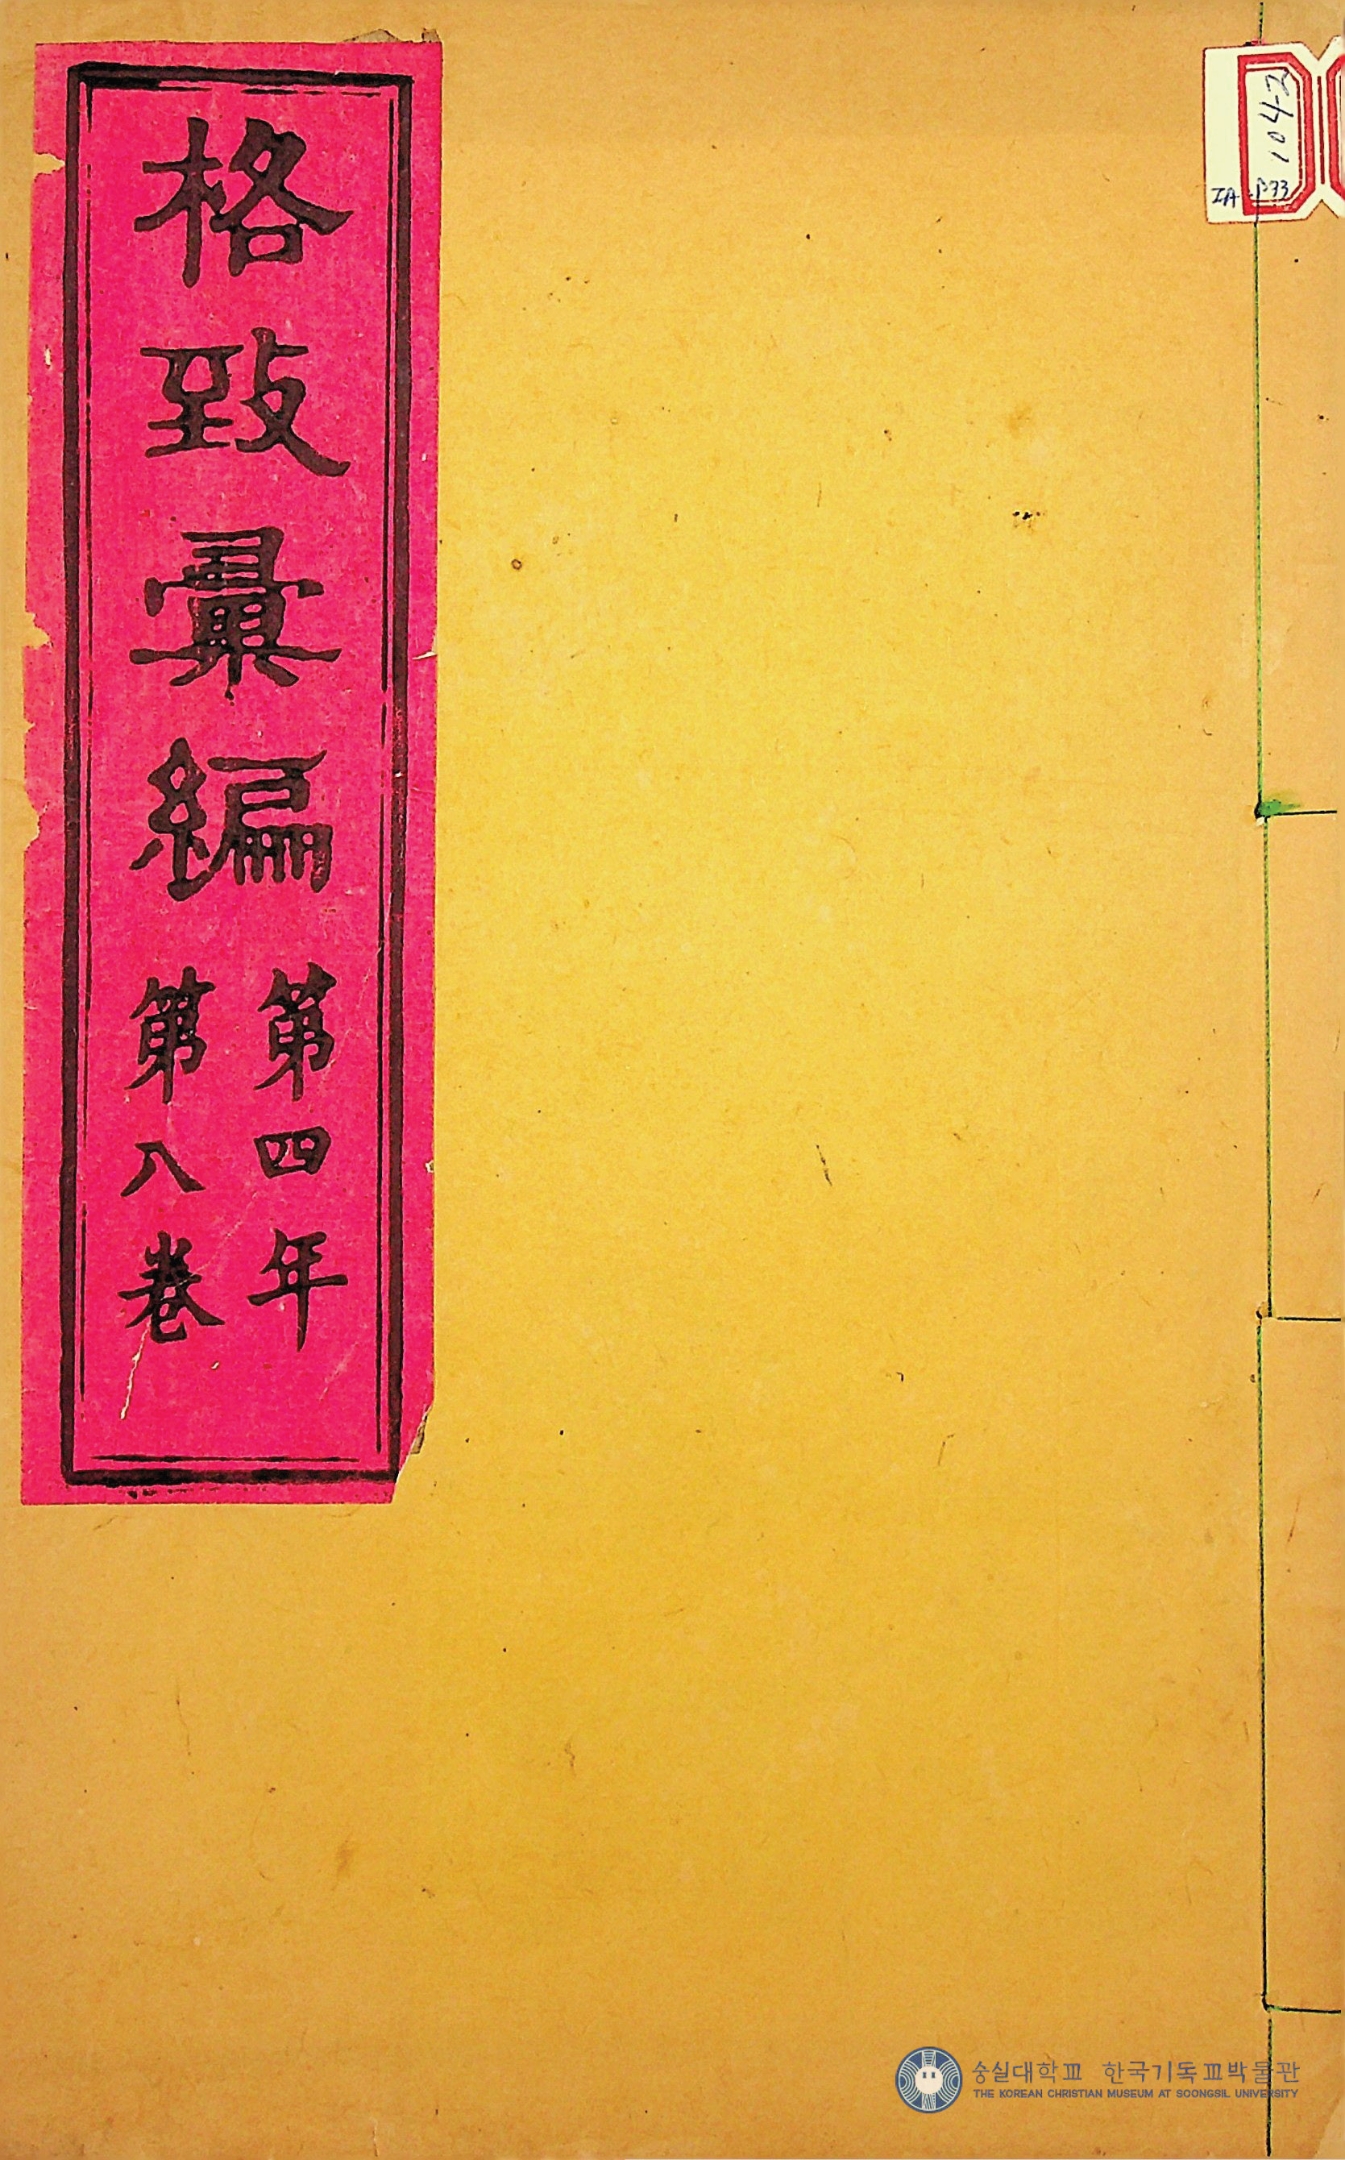 格致彙編
第四年
第八卷
104-2
IA-β33
숭실대학교 한국기독교박물관
THE KOREAN CHRISTIAN MUSEUM AT SOONGSIL UNIVERSITY